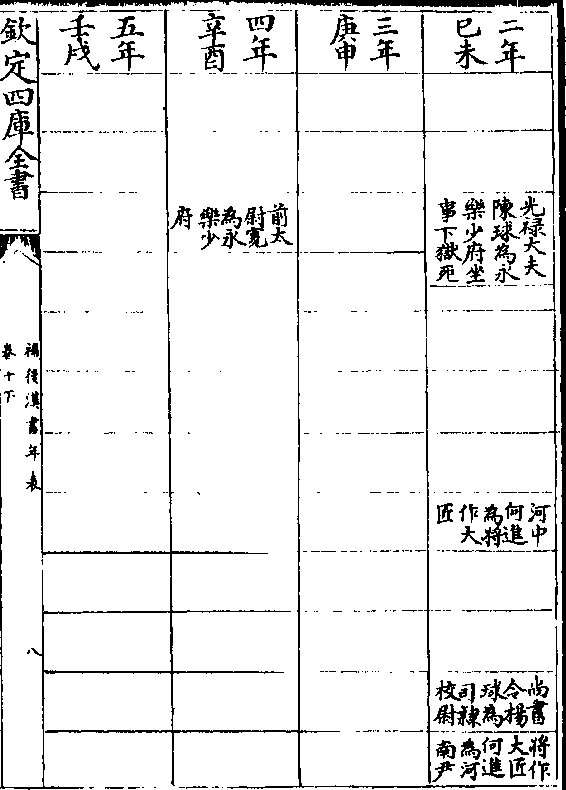 二年
己未
光祿大夫
陳球為永
樂少府坐
事下獄死
河中
何進
為將
作大
匠
尚書
令楊
球為
司隸
校尉
將作
大匠
何進
為河
南尹
三年
庚申
四年
辛酉
前太
尉寛
為永
樂少
府
五年
壬戌
欽定四庫全書
補後漢書年表
卷十下
八